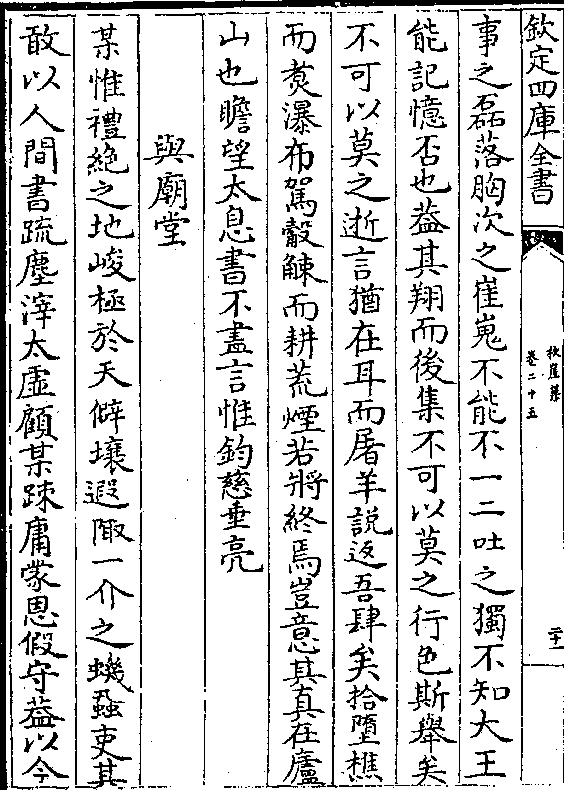 欽定四庫全書
卷二十五
事之磊落胸次之崔嵬不能不一二吐之獨不知大王
能記憶否也葢其翔而後集不可以莫之行色斯舉矣
不可以莫之逝言猶在耳而屠羊説返吾肆矣拾墮樵
而煑瀑布駕觳觫而耕荒煙若將終焉豈意其真在廬
山也瞻望太息書不盡言惟鈞慈垂亮
與廟堂
某惟禮絶之地峻極於天僻壤遐陬一介之蟣蝨吏其
敢以人間書疏塵滓太虚顧某踈庸蒙恩假守葢以今